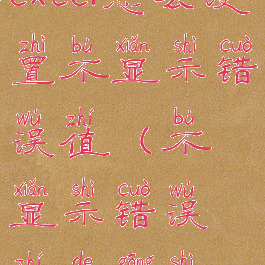 excel怎么设
zhì bù xiǎn shì cuò
置不显示错
wù zhí bù
误值（不
xiǎn shì cuò wù
显示错误
zhí de gōng shì